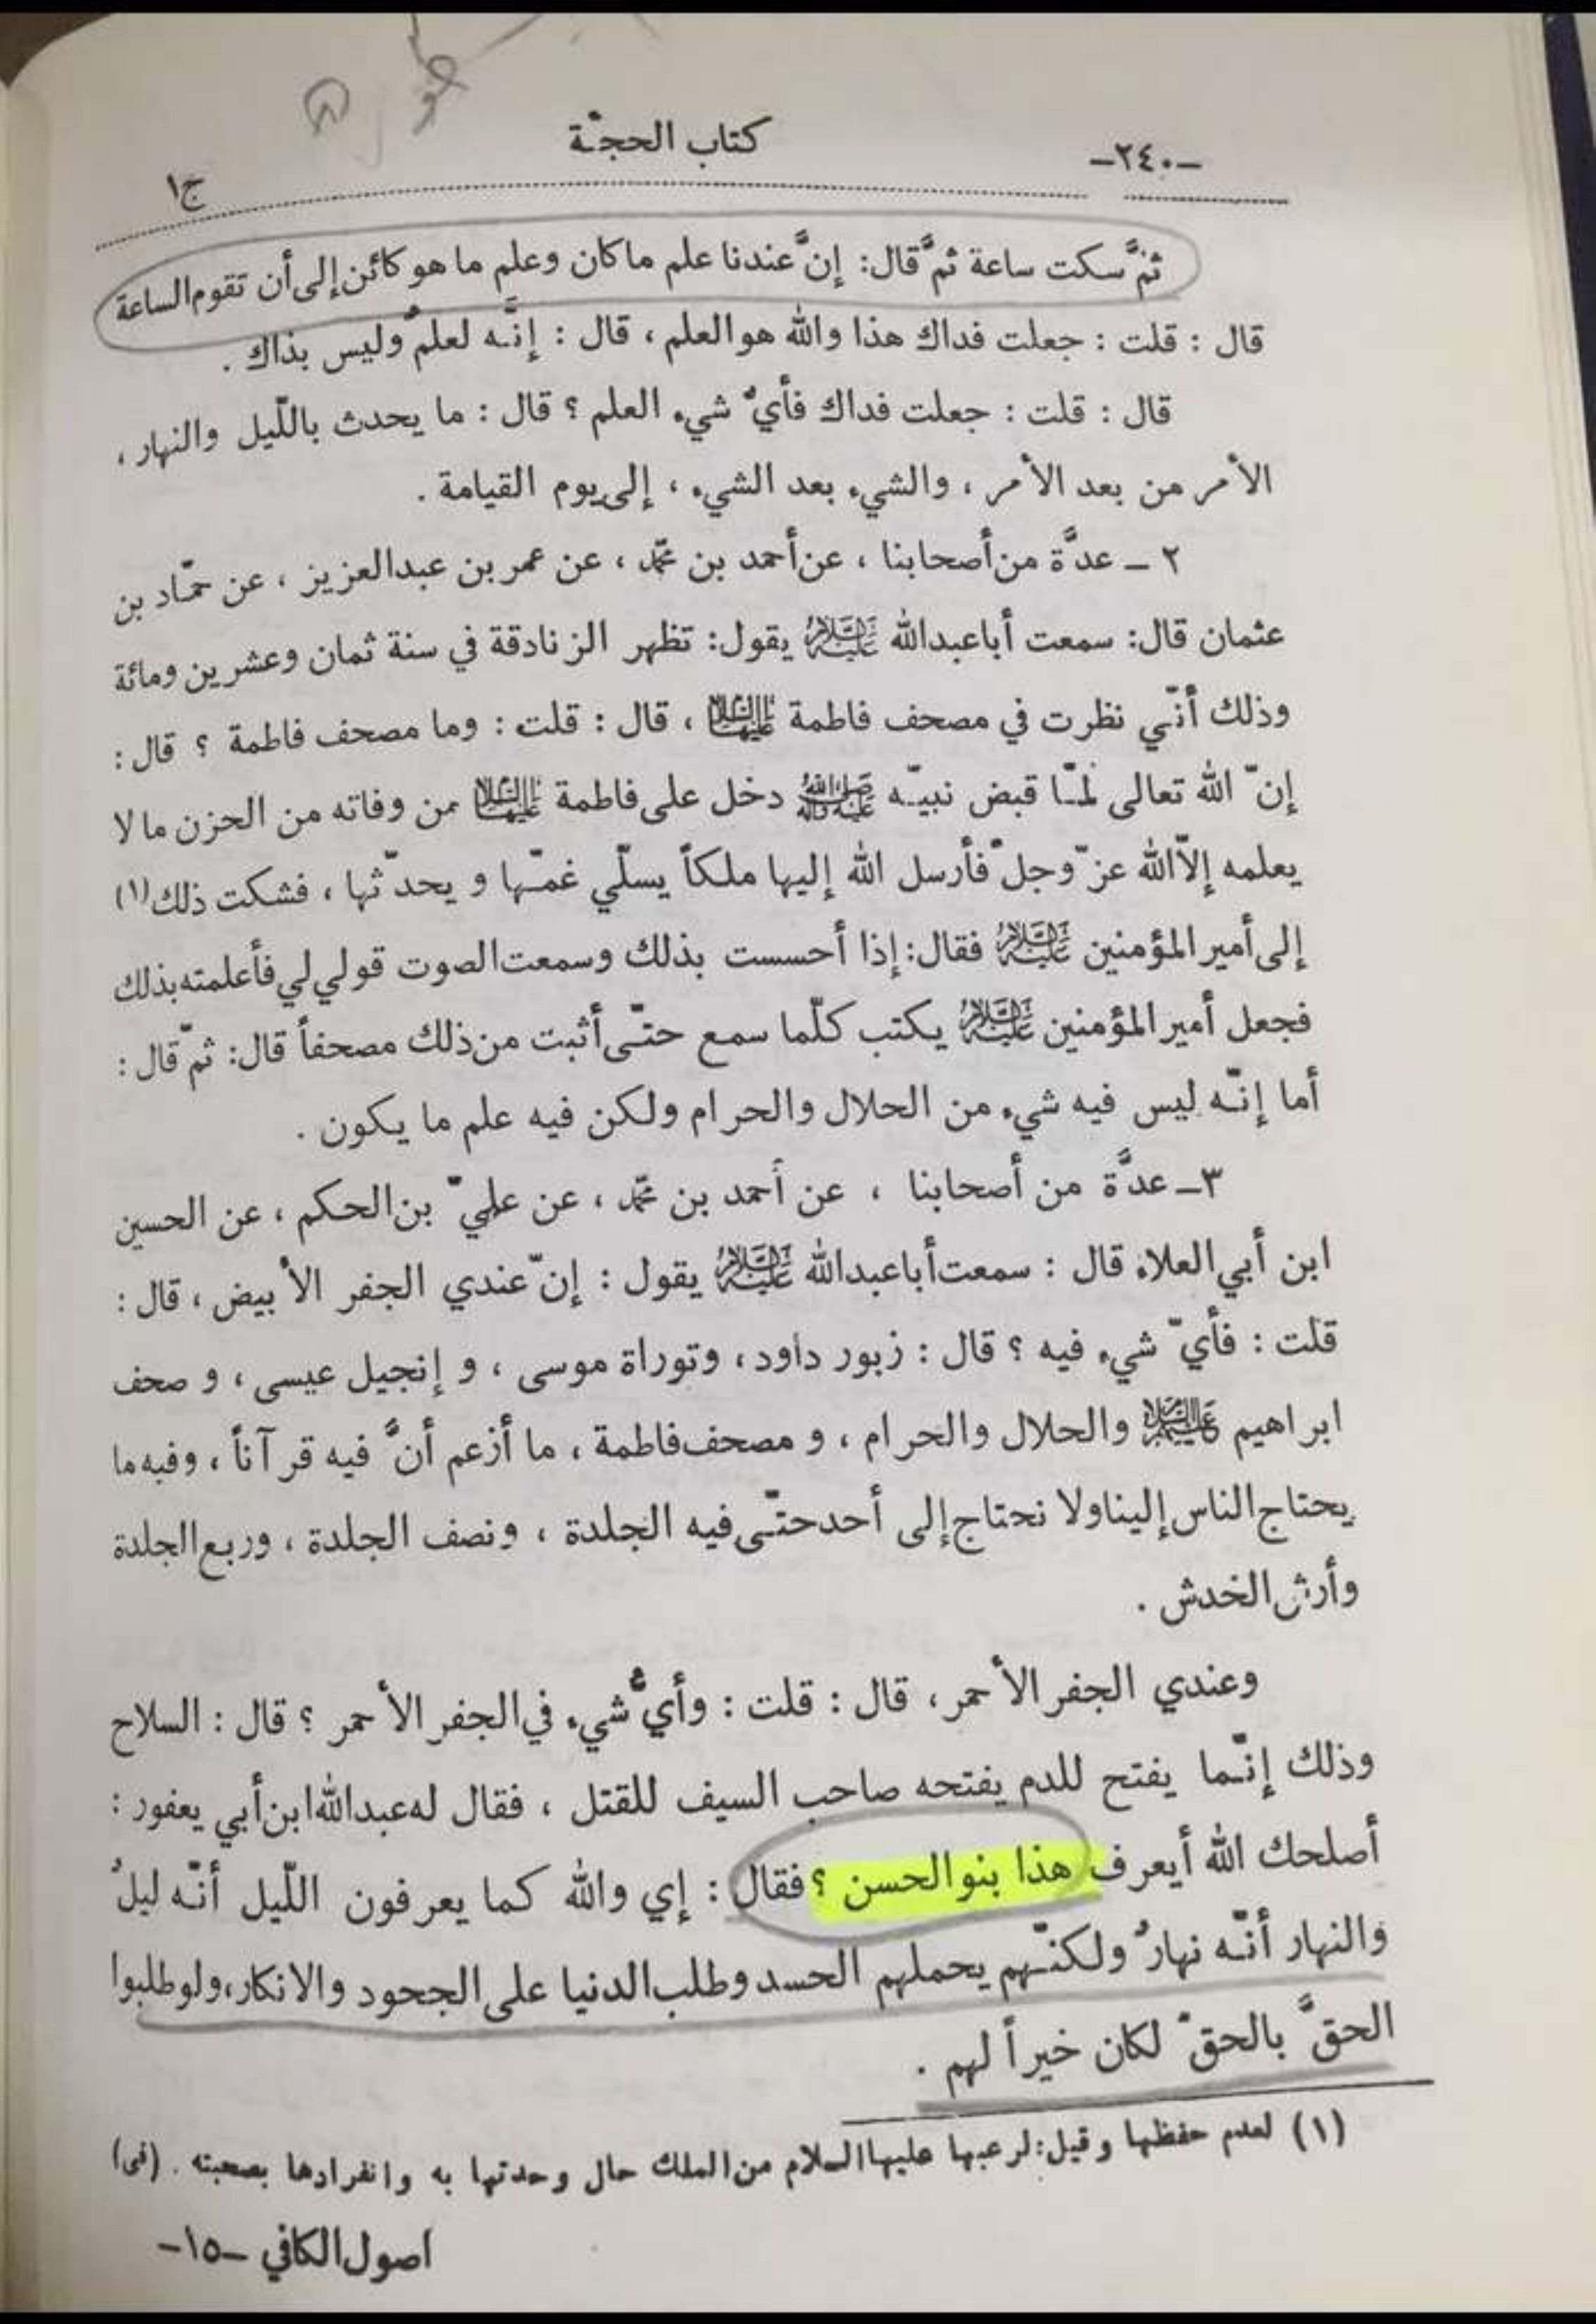 -٢٤٠-
كتاب الحجّة
ج١
ثمَّ سكت ساعة ثمَّ قال: إنَّ عندنا علم ما كان وعلم ما هو كائن إلى أن تقوم الساعة
قال : قلت : جعلت فداك هذا والله هو العلم ، قال : إنّه لعلمٌ وليس بذاك .
قال : قلت : جعلت فداك فأيُّ شيء العلم ؟ قال : ما يحدث باللّيل والنهار ،
الأمر من بعد الأمر ، والشيء بعد الشيء ، إلى يوم القيامة .
٢ - عدَّة من أصحابنا ، عن أحمد بن محمّد ، عن عمر بن عبدالعزيز ، عن حمّاد بن
عثمان قال: سمعت أبا عبدالله عليه السلام يقول: تظهر الزنادقة في سنة ثمان وعشرين ومائة
وذلك أنّي نظرت في مصحف فاطمة عليها السلام ، قال : قلت : وما مصحف فاطمة ؟ قال :
إنّ الله تعالى لمّا قبض نبيّه صلى الله عليه وآله دخل على فاطمة عليها السلام من وفاته من الحزن ما لا
يعلمه إلّا الله عزّ وجلّ فأرسل الله إليها ملكاً يسلّي غمّها و يحدّثها ، فشكت ذلك (١)
إلى أمير المؤمنين عليه السلام فقال: إذا أحسست بذلك وسمعت الصوت قولي لي فأعلمته بذلك
فجعل أمير المؤمنين عليه السلام يكتب كلّما سمع حتّى أثبت من ذلك مصحفاً قال: ثمّ قال :
أما إنّه ليس فيه شيء من الحلال والحرام ولكن فيه علم ما يكون .
٣- عدَّة من أصحابنا ، عن أحمد بن محمّد ، عن عليّ بن الحكم ، عن الحسين
ابن أبي العلاء قال : سمعت أبا عبدالله عليه السلام يقول : إنّ عندي الجفر الأبيض ، قال :
قلت : فأيّ شيء فيه ؟ قال : زبور داود ، وتوراة موسى ، و إنجيل عيسى ، و صحف
ابراهيم عليهم السلام والحلال والحرام ، و مصحف فاطمة ، ما أزعم أنَّ فيه قرآناً ، وفيه ما
يحتاج الناس إلينا ولا نحتاج إلى أحد حتّى فيه الجلدة ، ونصف الجلدة ، وربع الجلدة
وأرش الخدش .
وعندي الجفر الأحمر ، قال : قلت : وأيُّ شيء في الجفر الأحمر ؟ قال : السلاح
وذلك إنّما يفتح للدم يفتحه صاحب السيف للقتل ، فقال له عبدالله ابن أبي يعفور :
أصلحك الله أيعرف هذا بنو الحسن ؟ فقال : إي والله كما يعرفون اللّيل أنّه ليلٌ
والنهار أنّه نهارٌ ولكنّهم يحملهم الحسد وطلب الدنيا على الجحود والانكار، ولو طلبوا
الحقَّ بالحقّ لكان خيراً لهم .
(١) لعدم حفظها و قيل: لرعبها عليها السلام من الملك حال وحدتها به وانفرادها بصحبته . (فى)
اصول الكافي -١٥-